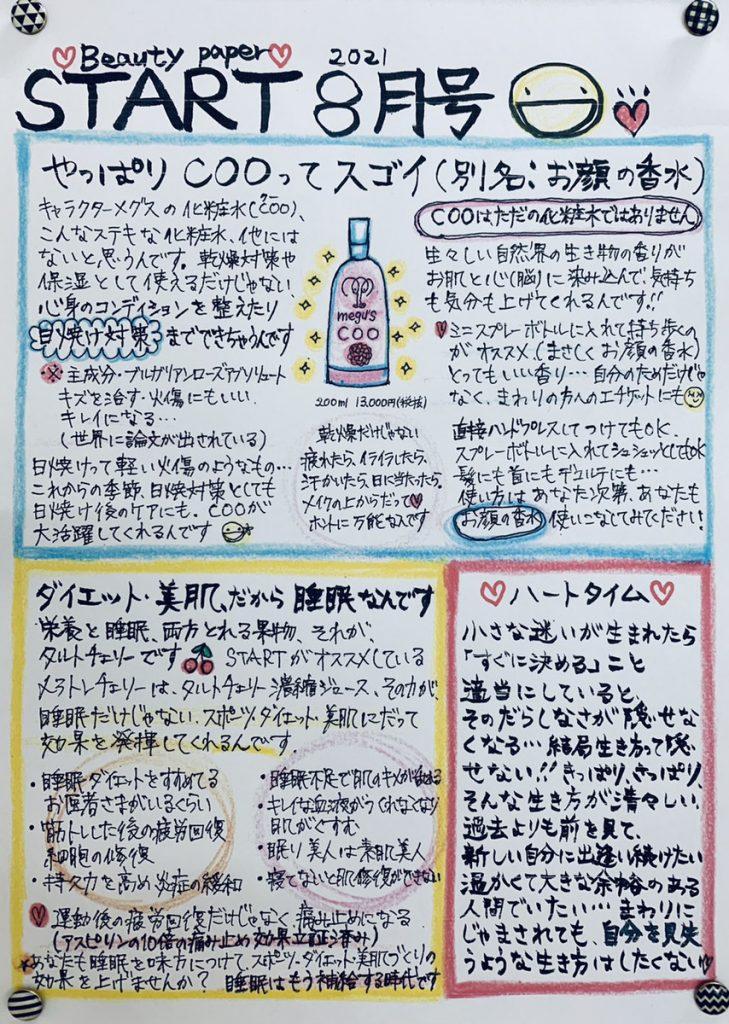 Beauty paper
2021
START 8月号
やっぱり COOってスゴイ(別名:お顔の香水)
キャラクターメグスの化粧水(COO)、
クー
こんなステキな化粧水、他には
ないと思うんです。乾燥対策や
保湿として使えるだけじゃない、
心身のコンディションを整えたり
日焼け対策 までできちゃうんです
※ 主成分・ブルガリアンローズアブソリュート
キズを治す・火傷にもいい、
キレイになる…
(世界に論文が出されている)
日焼けって軽い火傷のようなもの…
これからの季節、日焼対策としても
日焼け後のケアにも、COOが
大活躍してくれるんです
megu's
COO
200ml 13,000円(税抜)
乾燥だけじゃない
疲れたら、イライラしたら、
汗かいたら、日に当たったら、
メイクの上からだって
ホントに万能なんです
COOはただの化粧水ではありません
生々しい自然界の生き物の香りが
お肌と心(脳)に染み込んで、気持ち
も気分も上げてくれるんです!!
ミニスプレーボトルに入れて持ち歩くの
がオススメ(まさしくお顔の香水)
とってもいい香り…自分のためだけじゃ
なく、まわりの方へのエチケットにも
直接ハンドプレスしてつけてもOK
スプレーボトルに入れてシュシュッとしてもOK
髪にも首にもデコルテにも…
使い方はあなた次第、あなたも
お顔の香水 使いこなしてみてください!
ダイエット・美肌、だから睡眠なんです
栄養と睡眠、両方とれる果物、それが、
タルトチェリーです STARTがオススメしている
メラトンチェリーは、タルトチェリー濃縮ジュース、その力が、
睡眠だけじゃない、スポーツ、ダイエット・美肌にだって
効果を発揮してくれるんです
・睡眠ダイエットをすすめてる
お医者さまがいるくらい
・筋トレした後の疲労回復
細胞の修復
・持久力を高め炎症の緩和
・睡眠不足で肌のキメが
・キレイな血液がつくれなくなり
肌がくすむ
・眠り美人は素肌美人
・寝てないと肌修復ができない
運動後の疲労回復だけじゃなく痛み止めになる
(アスピリンの10倍の痛み止め効果立証済み)
*あなたも睡眠を味方につけて、スポーツ・ダイエット・美肌づくりの
効果を上げませんか? 睡眠はもう補給する時代です
ハートタイム
小さな迷いが生まれたら
「すぐに決める」こと
適当にしていると、
そのだらしなさが隠せなく
なくなる…結局生き方って隠
せない!!きっぱり、さっぱり、
そんな生き方が清々しい、
過去よりも前を見て、
新しい自分に出逢い続けたい
温かくて大きな余裕のある
人間でいたい…まわりに
じゃまされても、自分を見失
うような生き方はしたくない